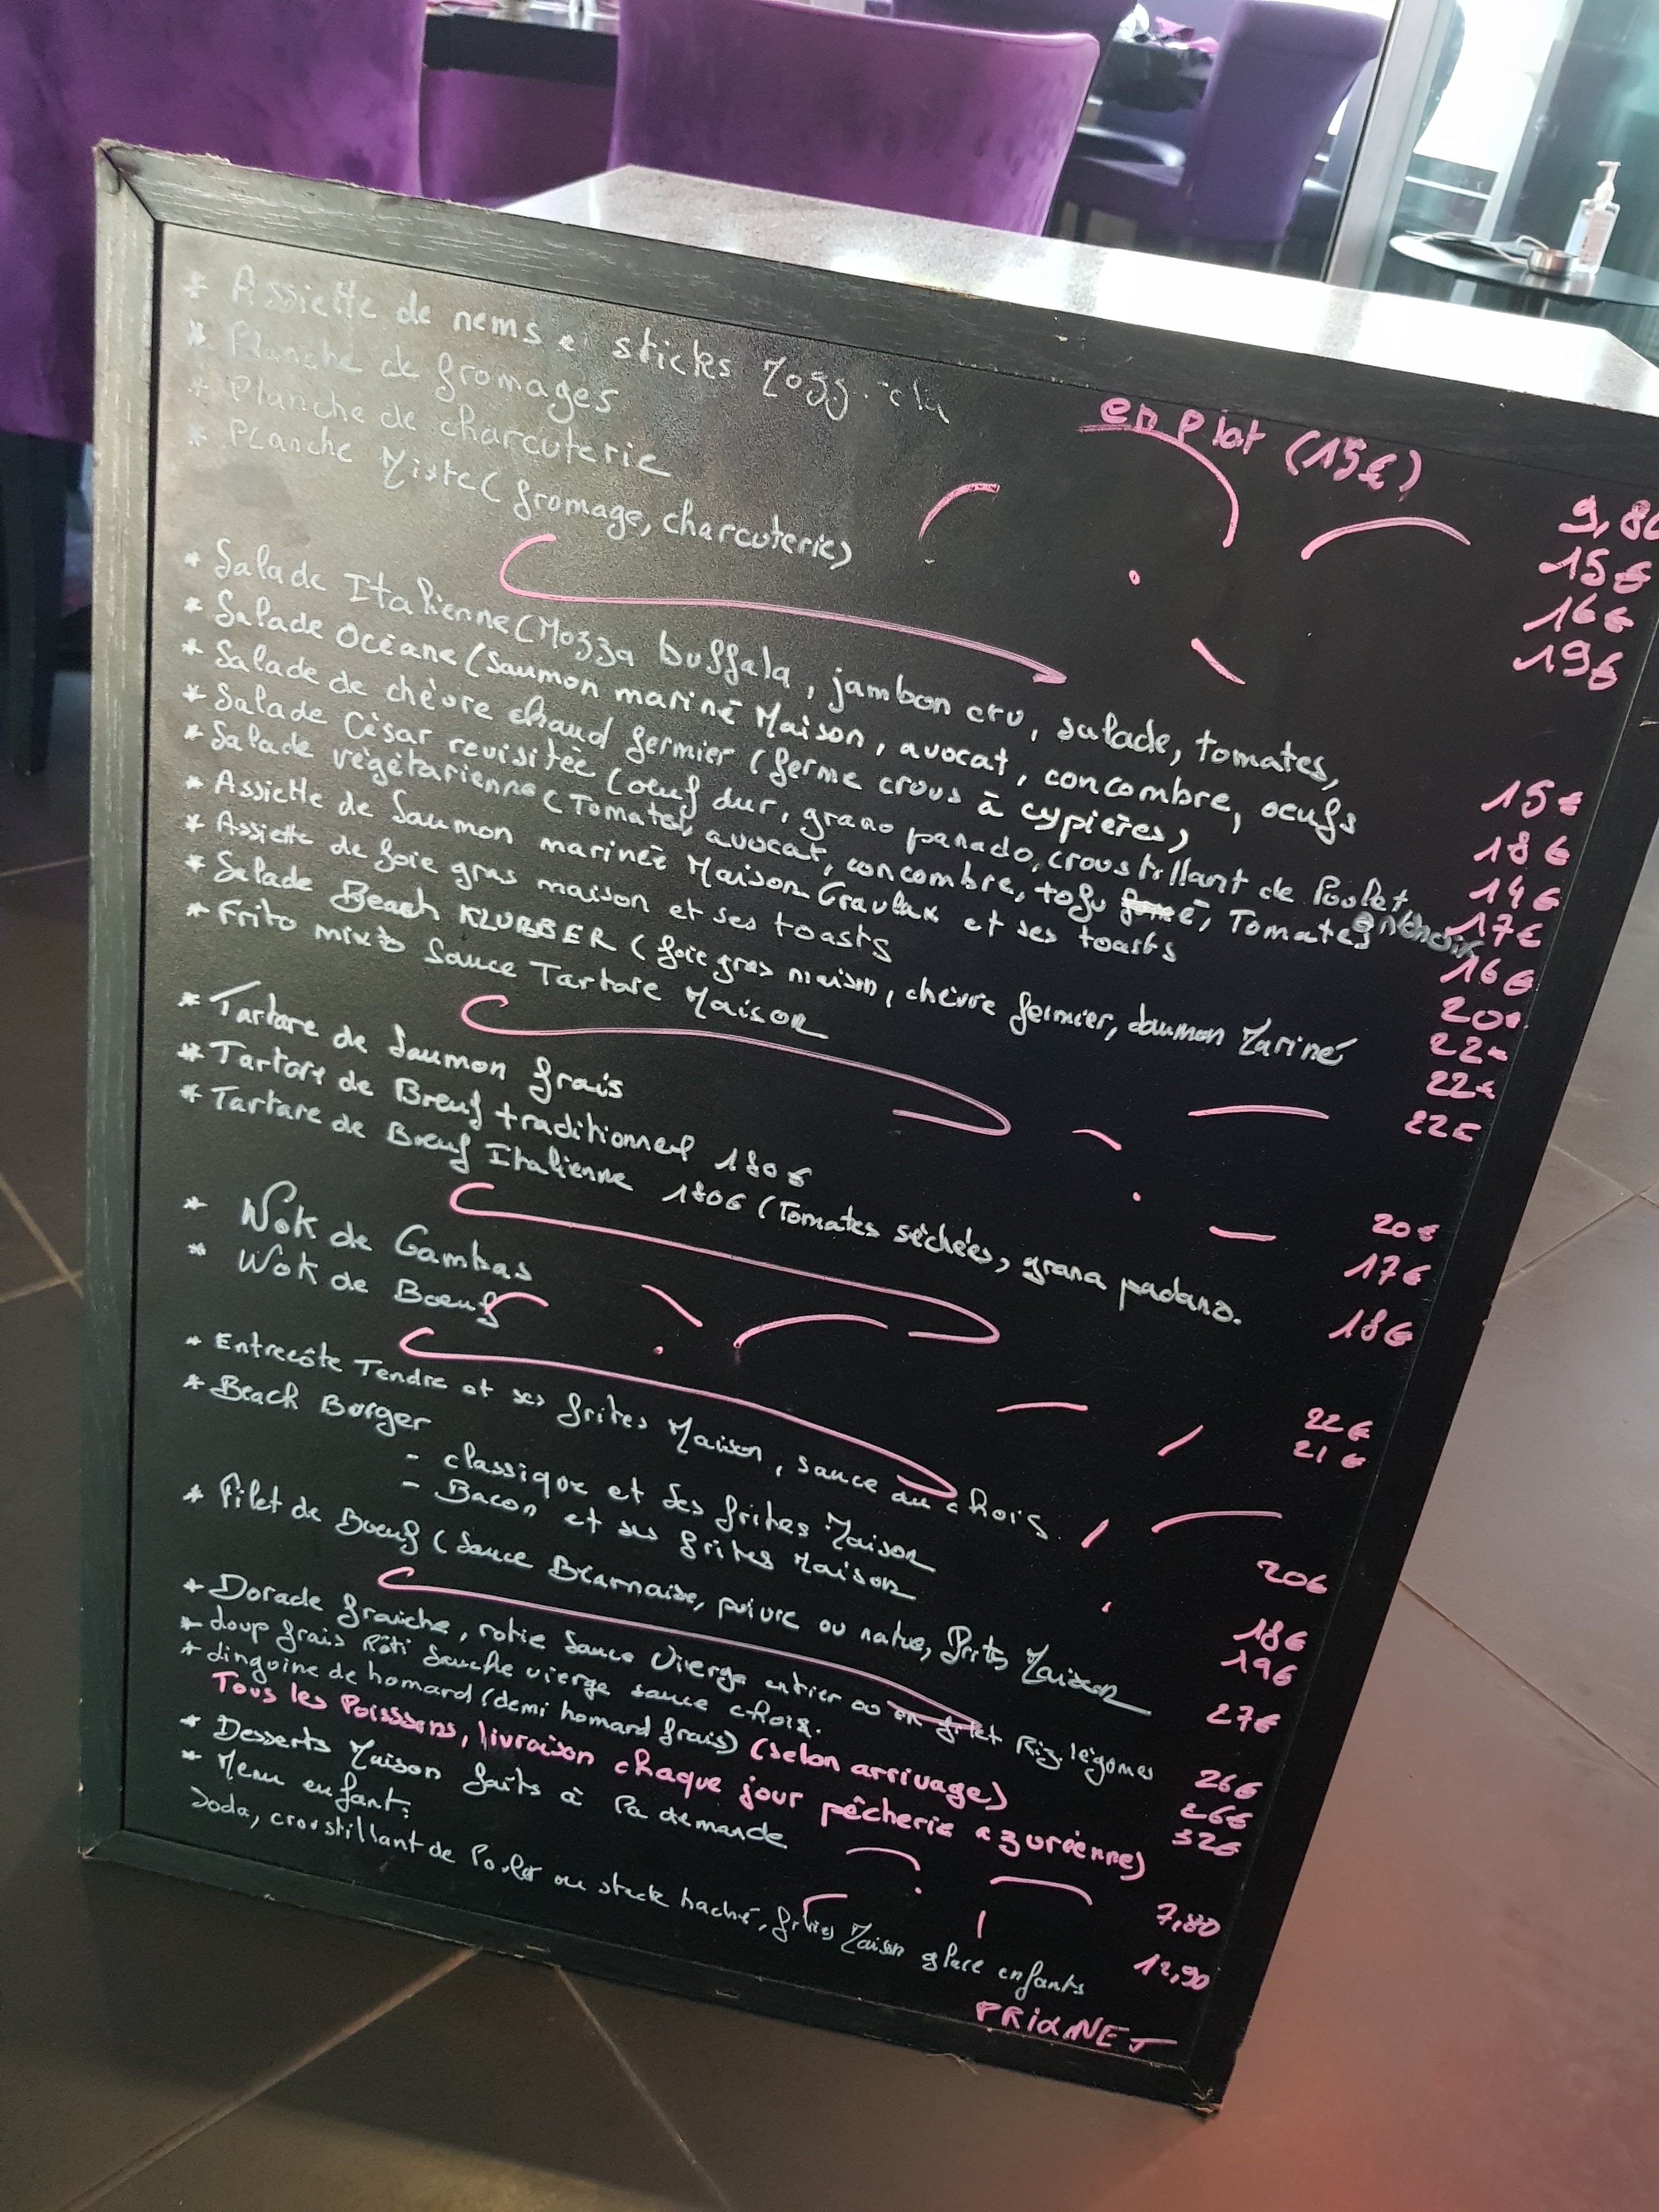 * Assiette de nems et sticks Mozzarella en plat (15€) 9,80
* Planche de fromages 15€
* Planche de charcuterie 16€
* Planche Mixte (fromage, charcuterie) 19€
* Salade Italienne (Mozza buffala, jambon cru, salade, tomates, 15€
* Salade Océane (Saumon mariné Maison, avocat, concombre, oeufs 18€
* Salade de chèvre chaud fermier (ferme crous à cypières) 14€
* Salade César revisitée (oeuf dur, grano panado, croustillant de Poulet, anchois 17€
* Salade végétarienne (Tomates, avocat, concombre, tofu, Tomates 16€
* Assiette de Saumon marinée Maison Gravlax et ses toasts 20€
* Assiette de foie gras maison et ses toasts 22€
* Salade Beach KLUBBER (foie gras maison, chèvre fermier, Saumon Mariné 22€
* Frito mixto Sauce Tartare Maison 22€
* Tartare de Saumon frais 20€
* Tartare de Boeuf traditionnel 180g 17€
* Tartare de Boeuf Italienne 180G (Tomates séchées, grana padano. 18€
* Wok de Gambas 22€
* Wok de Boeuf 21€
* Entrecôte Tendre et ses frites Maison, sauce au chois 20€
* Beach Burger
- classique et ses frites Maison 18€
- Bacon et ses frites Maison 19€
* Filet de Boeuf (Sauce Béarnaise, poivre ou nature, frites Maison 27€
* Dorade fraîche, rotie Sauce Vierge entier ou en filet Riz, légumes 26€
* Loup frais Rôti Sauche vierge sauce choix. 26€
* Linguine de homard (demi homard frais) (selon arrivage) 32€
Tous les Poisssons, livraison chaque jour pêcherie azuréenne)
* Desserts Maison faits à la demande 7,80
* Menu enfant:
Soda, croustillant de Poulet ou steck haché, frites Maison glace enfants 12,90
PRIX NET